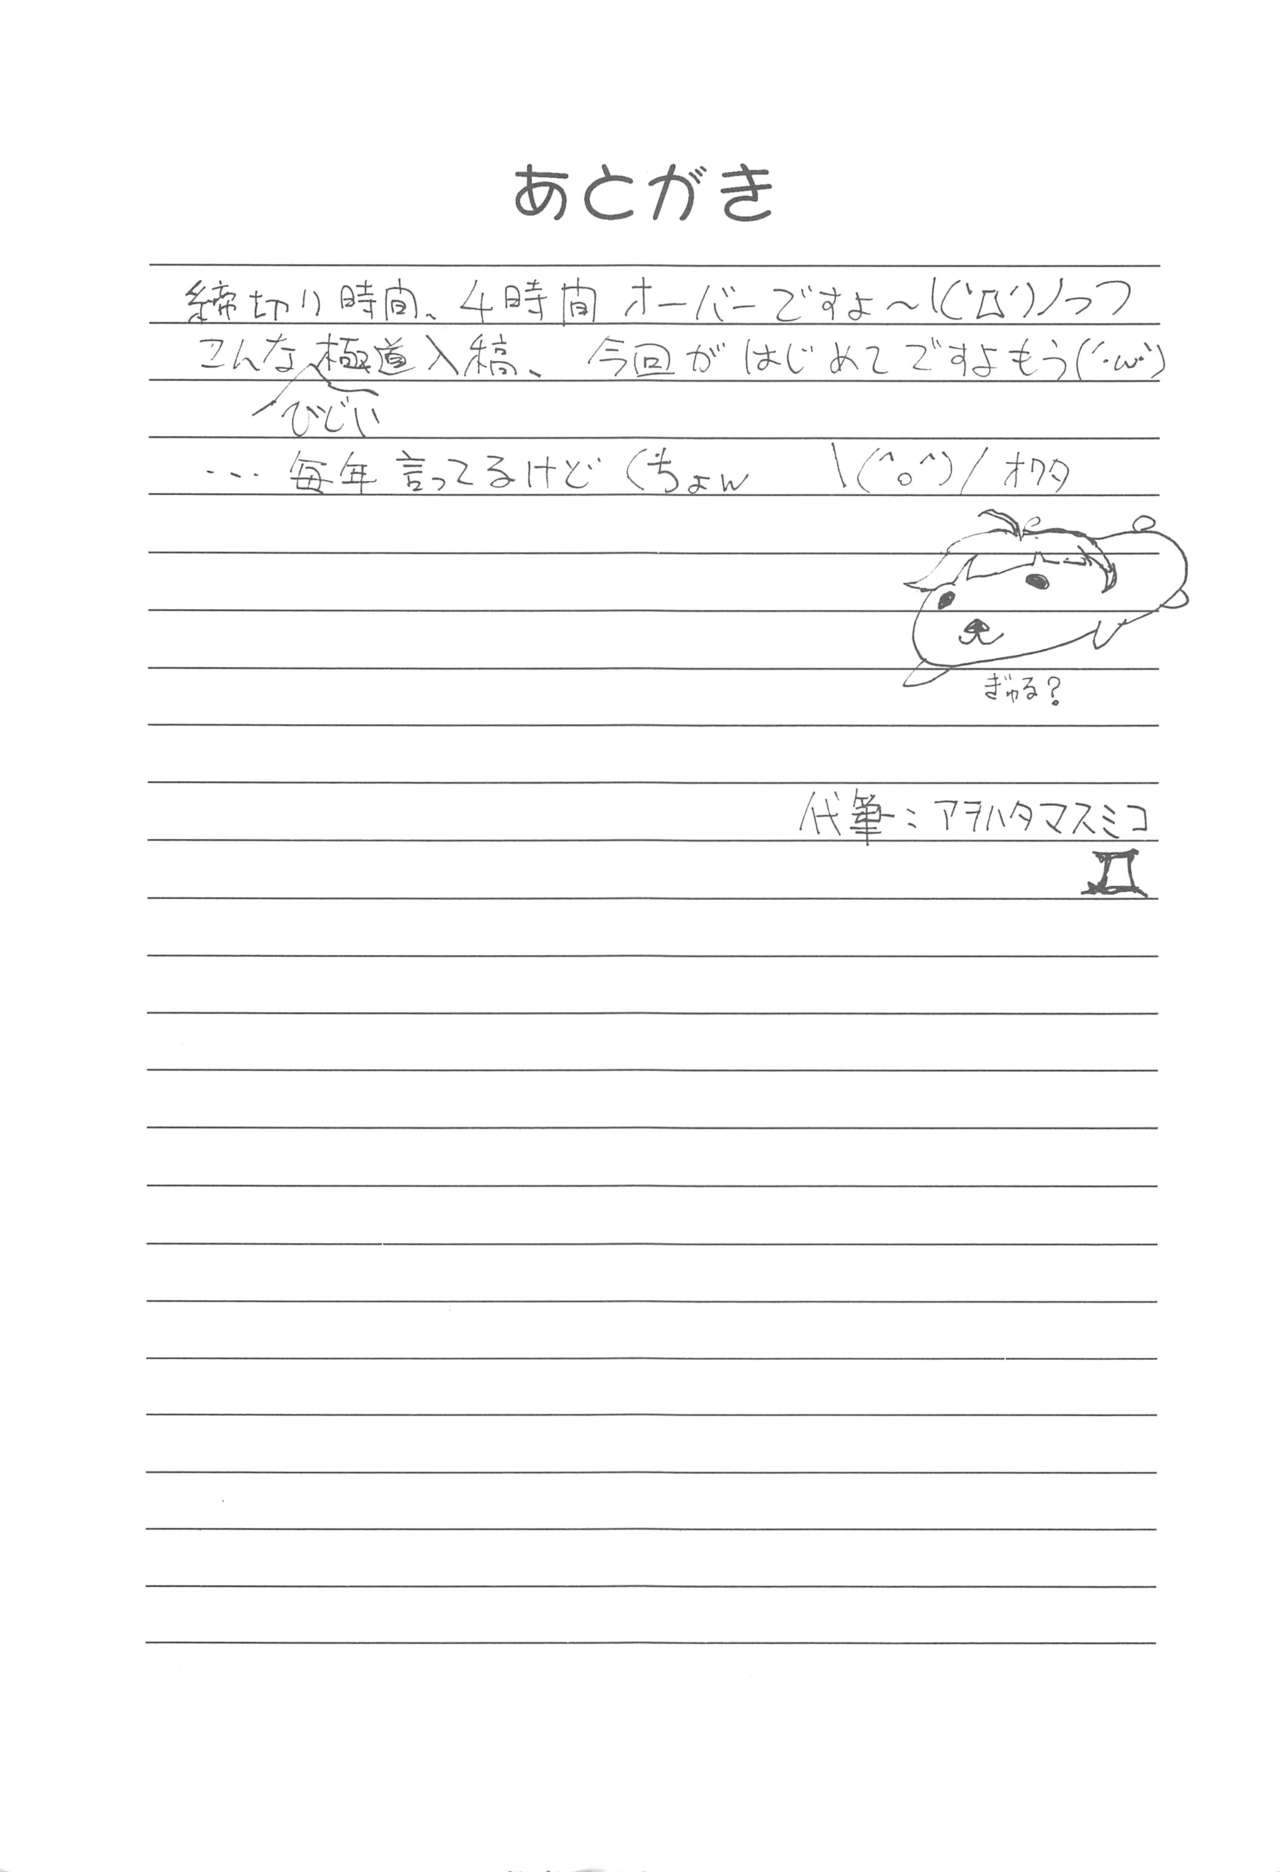 あとがき
締切り時間、4時間オーバーですよ~\('Д')ノつつ
こんな極道入稿、今回がはじめてですよもう(´・ω・`)
ひどい
… 毎年言ってるけど くちょw \(^o^)/ オワタ
ぎゅる?
代筆:アヲハタマスミコ